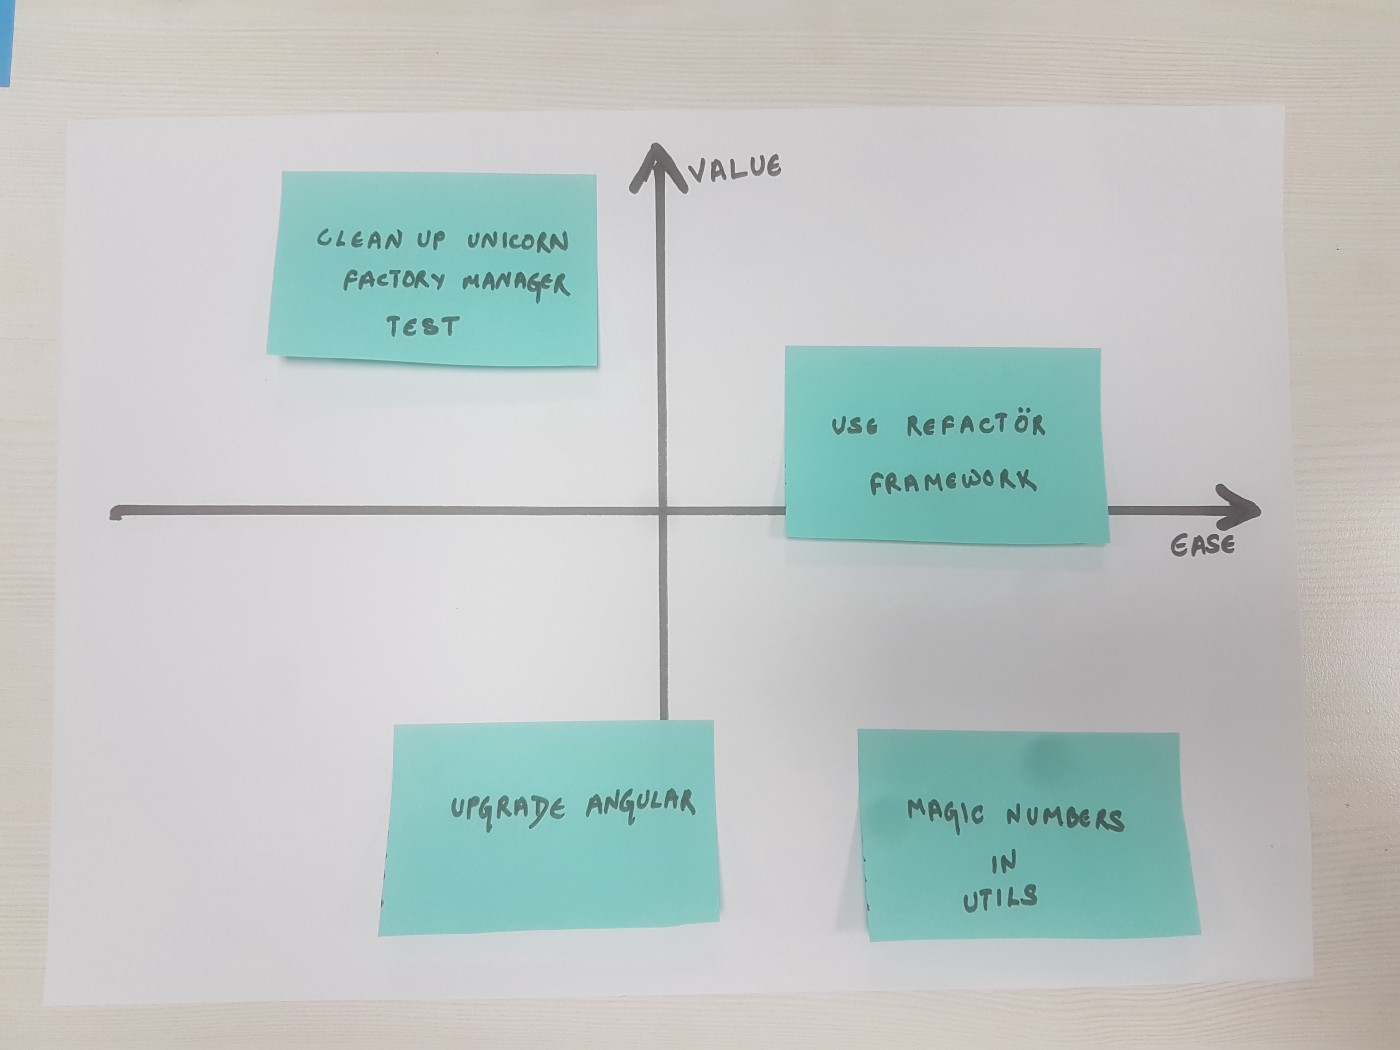 VALUE
CLEAN UP UNICORN
FACTORY MANAGER
TEST
USE REFACTÖR
FRAMEWORK
EASE
UPGRADE ANGULAR
MAGIC NUMBERS
IN
UTILS